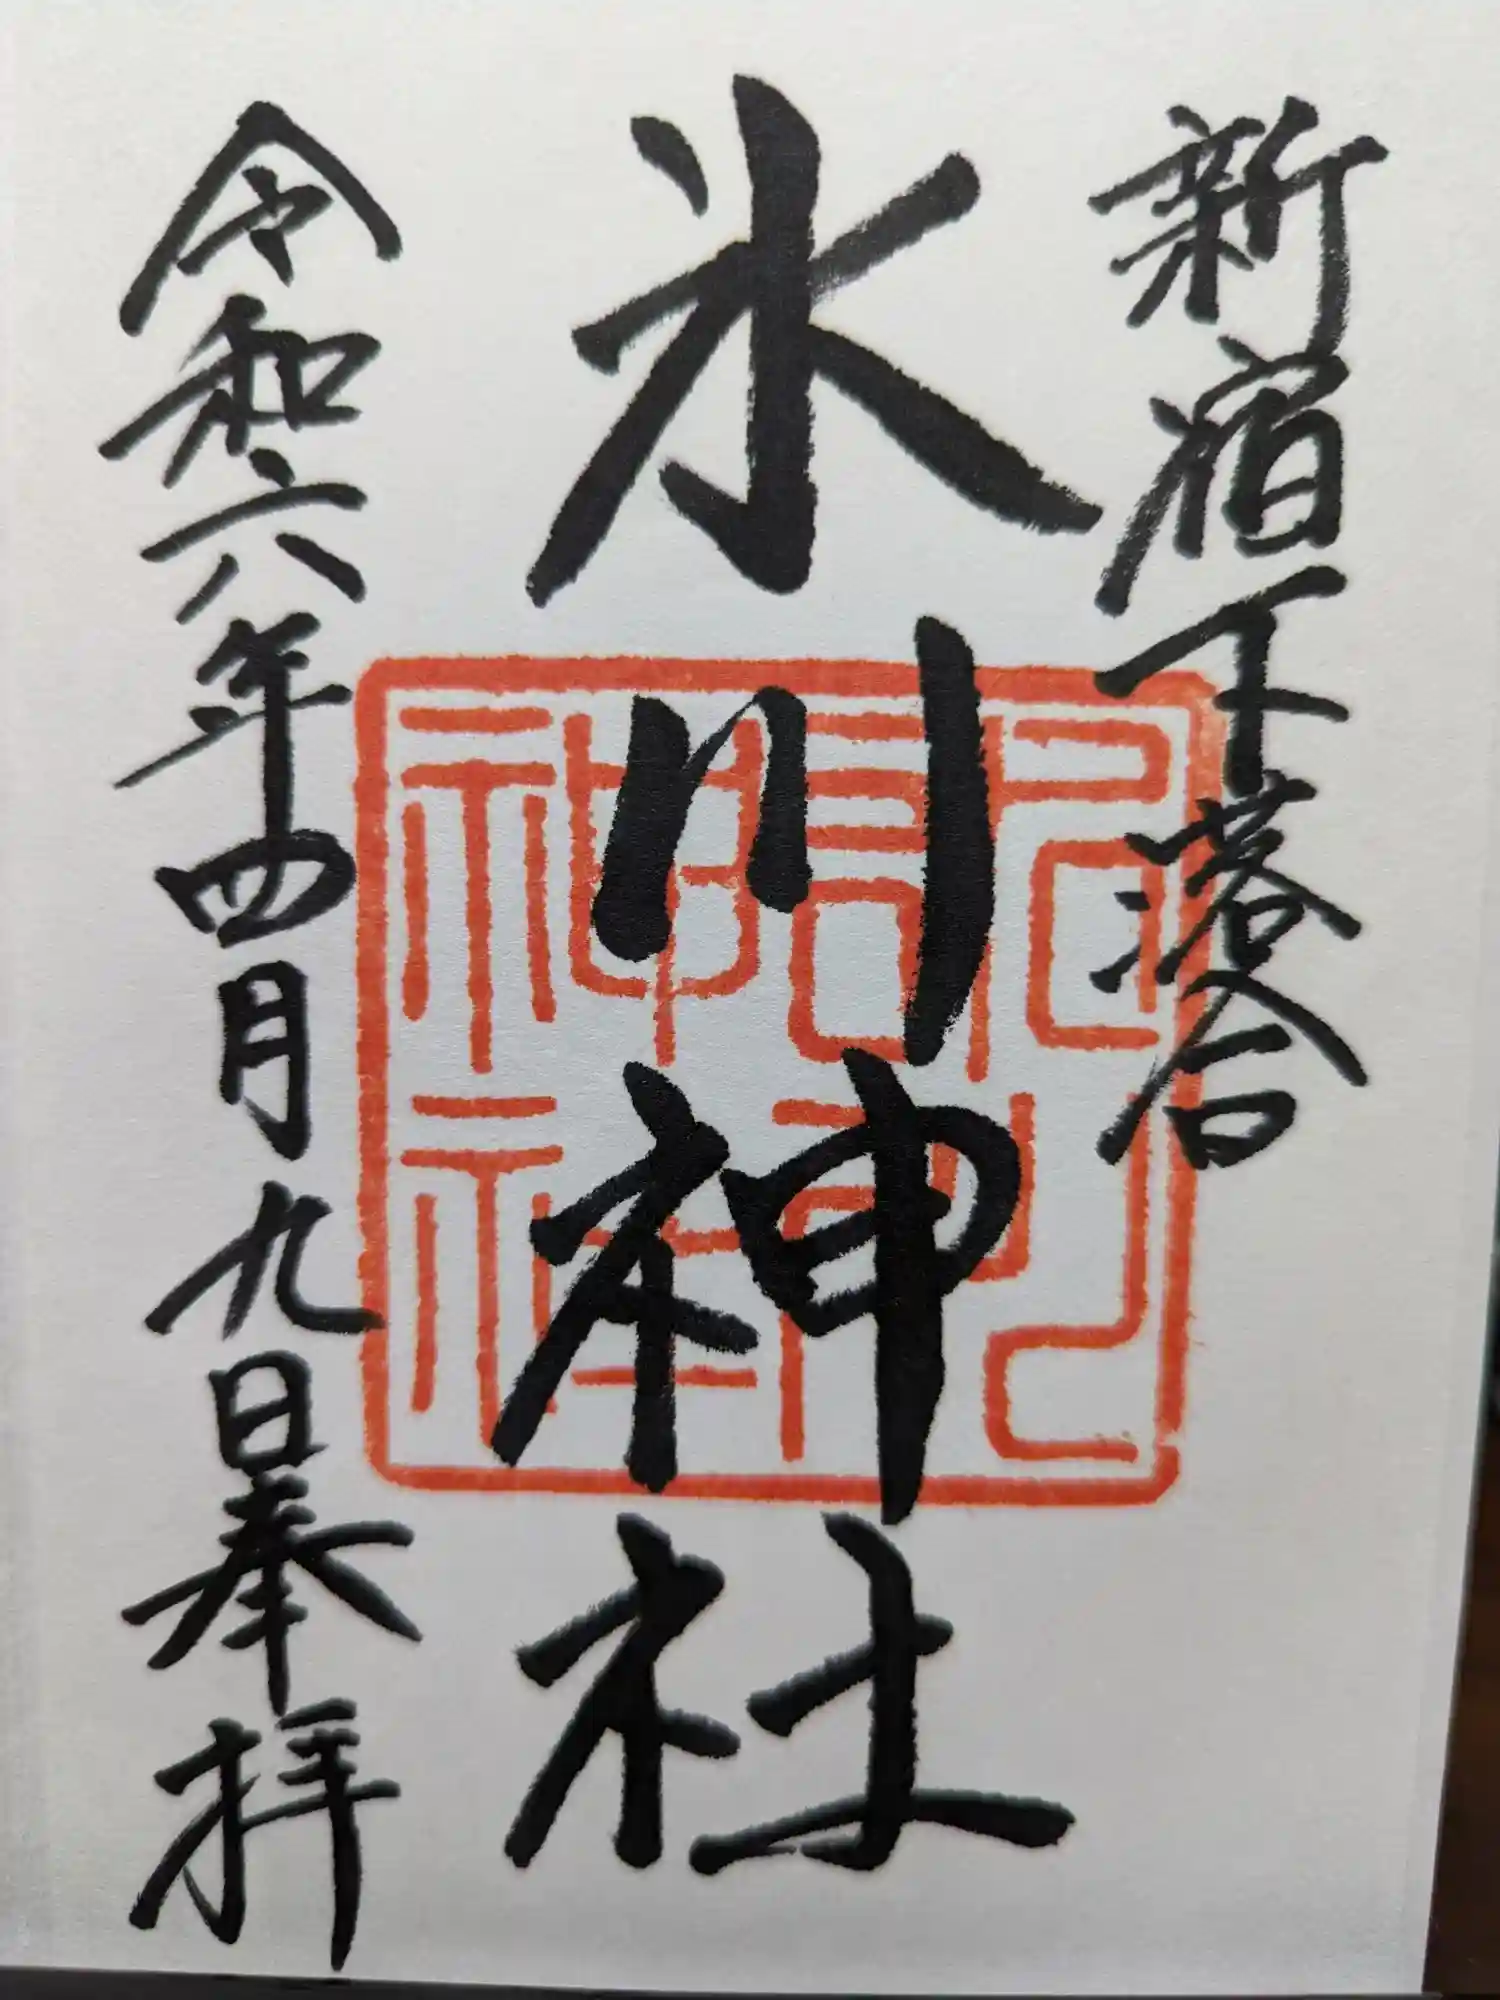 新宿下落合
氷川神社
令和六年四月九日奉拝